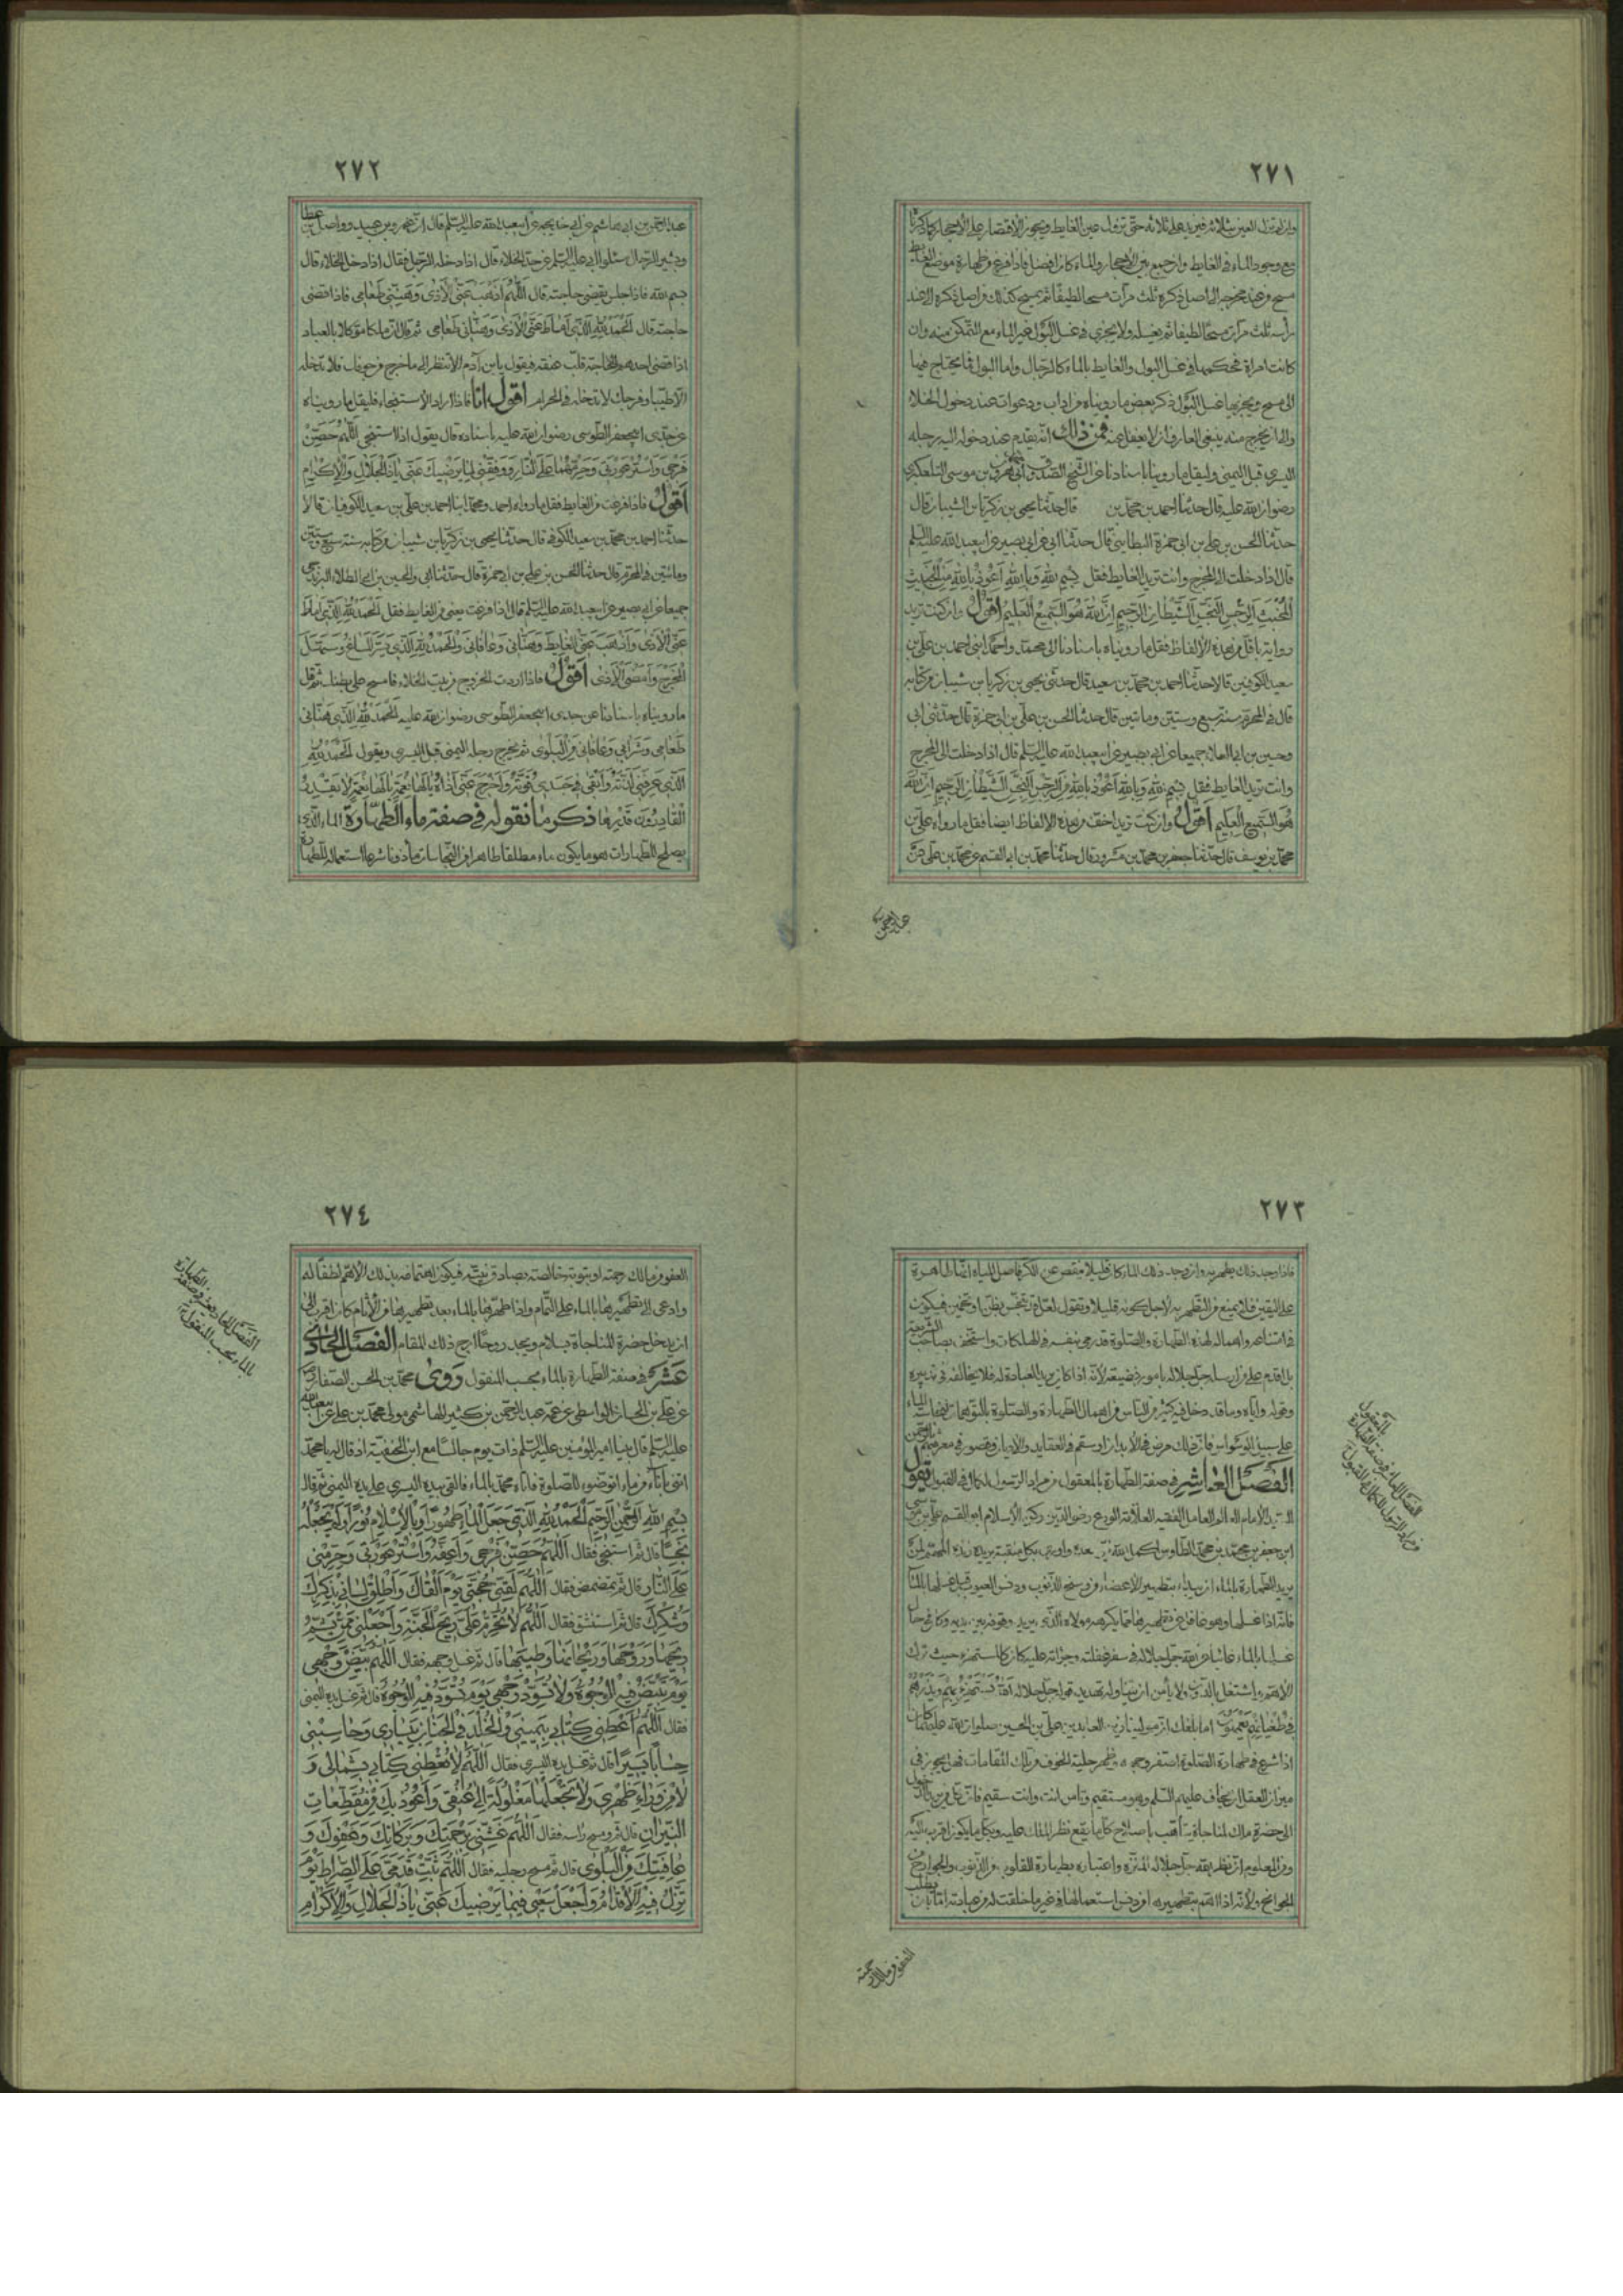 ٢٧١
وان لم تزل العين بثلاثة فيزيد على ثلاثه حتى تزول عين الغايط ويجوز الاقتصار على الاحجار كما ذكرنا
مع وجود الماء فى الغايط وان جمع بين الاحجار والماء كان افضل فاذا فرغ من طهارة موضع الغايط
مسح من عند مخرجه الى اصل ذكره ثلث مرات مسحا لطيفا ثم يمسح كذلك من اصل ذكره الى عند
رأسه ثلث مرات مسحا لطيفا ثم يغسله ولا يجزى فى غسل البول غير الماء مع التمكن منه وان
كانت امراة فحكمها فى غسل البول والغايط بالماء كالرجال واما البول فما يحتاج فيها
الى مسح ويجزيها غسل البول ذكر بعض ما رويناه من اداب ودعوات عند دخول الخلا
والى ان يخرج منه ينبغى للعارف ان لا يغفل عنه فمن ذلك انه يقدم عند دخوله اليه رجله
اليسرى قبل اليمنى وليقل ما روينا باسنادنا عن الشيخ الصدوق بن موسى التلعكبرى
رضوان الله عليه قال حدثنا احمد بن محمد بن قال حدثنا يحيى بن زكريا بن الشيبان قال
حدثنا الحسن بن على بن ابى حمزة البطاينى قال حدثنا ابى عن ابى بصير عن ابيعبد الله عليه السلم
قال اذا دخلت الى المخرج وانت تريد الغايط فقل بسم الله وبالله اعوذ بالله من الخبيث
المخبث الرجس النجس الشيطان الرجيم ان الله هو السميع العليم اقول وان كنت تريد
رواية باقل من هذه الالفاظ فقل ما رويناه باسنادنا الى محمد واحمد ابنى احمد بن على بن
سعيد الكوفيين قالا حدثنا احمد بن محمد بن سعيد قال حدثنى يحيى بن زكريا بن شيبان من كتابه
قال فى المحرم سنة سبع وستين وماتين قال حدثنا الحسن بن على بن ابى حمزة قال حدثنى ابى
وحسين بن ابى العلا جميعا عن ابى بصير عن ابيعبد الله عليه السلم قال اذا دخلت الى المخرج
وانت تريد الغايط فقل بسم الله وبالله اعوذ بالله من الرجس النجس الشيطان الرجيم ان الله
هو السميع العليم اقول وان كنت تريد اخف من هذه الالفاظ ايضا فقل ما رواه على بن
محمد بن يوسف قال حدثنا جعفر بن محمد بن مسرور قال حدثنا محمد بن ابى القسم عن محمد بن على عن
عبد الرحمن
٢٧٢
عبد الرحمن بن ابى هاشم عن ابى خديجه عن ابيعبد الله عليه السلم قال ان عمرو بن عبيد وواصل بن عطا
وبشير الرحال سئلوا ابى عليه السلم عن حد الخلاء قال اذا دخله الرجل فقال اذا دخل الخلاء قال
بسم الله فاذا جلس يقضى حاجته قال اللهم اذهب عنى الاذى وهنئنى طعامى فاذا قضى
حاجته قال الحمد لله الذى اماط عنى الاذى وهنأنى طعامى ثم قال ان ملكا موكلا بالعباد
اذا قضى احدهم الحاجته قلب عنقه فيقول يا بن آدم الا تنظر الى ما خرج من جوفك فلا تدخله
الا طيبا وفرجك لا تدخله فى الحرام اقول انا فاذا اراد الاستنجاء فليقل ما رويناه
عن جدى ابيجعفر الطوسى رضوان الله عليه باسناده قال يقول اذا استنجى اللهم حصن
فرجى واستر عورتى وحرمهما على النار ووفقنى لما يرضيك عنى يا ذا الجلال والاكرام
اقول فاذا فرغت من الغايط فقل ما رواه احمد ومحمد ابنا احمد بن على بن سعيد الكوفيان قالا
حدثنا احمد بن محمد بن سعيد الكوفى قال حدثنا يحيى بن زكريا بن شيبان من كتابه سنة سبع وستين
وماتين فى المحرم قال حدثنا الحسن بن على بن ابى حمزة قال حدثنا ابى والحسين بن ابى العلاء
جميعا عن ابى بصير عن ابيعبد الله عليه السلم قال اذا فرغت يعنى من الغايط فقل الحمد لله الذى اماط
عنى الاذى واذهب عنى الغايط وهنأنى وعافانى والحمد لله الذى يسر المساغ وسهل
المخرج وامضى الاذى اقول فاذا اردت الخروج من بيت الخلاء فامسح على بطنك ثم قل
ما رويناه باسنادنا عن جدى ابيجعفر الطوسى رضوان الله عليه الحمد لله الذى هنأنى
طعامى وشرابى وعافانى من البلوى ثم يخرج رجله اليمنى قبل اليسرى ويقول الحمد لله
الذى عرفنى لذته وابقى فى جسدى قوته واخرج عنى اذاه يا لها نعمة يا لها نعمة لا يقدر
القادرون قدرها ذكر ما نقوله فى صفة ماء الطهارة الماء الذى
يصلح للطهارات هو ما يكون ماء مطلقا طاهرا من النجاسات ماذونا شرعا استعماله للطهارة
٢٧٣
فاذا وجد ذلك يطهر به وان وجد ذلك الماء كان قليلا ينقص عن الكر فاصل المياه انها طاهرة
على اليقين فلا يمتنع من التطهر به لاجل كونه قليلا ويقول لعله قد تنجس بظن او تخمين فيكون
فامتناعه واهماله لهذه الطهارة والصلوة قد رمى نفسه فى الهلكات واستخف بصاحب الشريعة
بل اقدم على مراسله جل جلاله بامور فضيعة لانه اذا كان يريد العبادة له فلا يخالفه فى تدبيره
وقوله واياه وما قد دخل فيه كثير من الناس من اهمال الطهارة والصلوة بالتوهمات لنجاسة الماء
على سبيل الوسواس فان ذلك مرض فى الابدان او سقم فى العقايد والاديان وقصور فى معرفتهم
الفصل العاشر فى صفة الطهارة بالمعقول من مراد الرسول لكمال فى القبول يقول
السيد الامام العالم العامل الفقيه العلامة الورع رضى الدين ركن الاسلام ابو القسم على بن موسى
ابن جعفر بن محمد بن محمد الطاوس
يريد الطهارة بالماء ان يبداء بتطهير الاعضاء من وسخ الذنوب ودنس العيوب قبل غسلها بالماء
فانه اذا غسلها وهو غافل عن تطهيرها مما يكرهه مولاه الذى يريد وقوفه بين يديه وكان فى حال
غسلها بالماء
فى طغيانهم يعمهون اما بلغك ان مولينا زين العابدين على بن الحسين صلوات الله عليهما كان
اذا شرع فى طهارة الصلوة اصفر وجهه وظهر عليه الخوف من تلك المقامات فهل يجوز فى
ميزان العقل ان يخاف عليهم السلم وهو مستقيم وتامن انت وانت سقيم
الى حضرة ملك لمناجاته تاهب باصلاح كلما يقع نظر الملك عليه وكلما يكون اقرب اليه
ومن المعلوم ان نظر الله جل جلاله المنزه واعتباره بطهارة القلوب من الذنوب والجوارح من
العفو من مالك رحمته
الفصل العاشر فى صفة الطهارة
بالمعقول
من مراد الرسول لكمال فى القبول
٢٧٤
العفو من مالك رحمته او بتوبة خالصة بصادق نيته فيكون اهتمامه بذلك الاهم لطفا له
وادعى الى تطهيرها بالماء على التمام واذا طهرها بالماء بعد تطهيرها من الاثام كان اقرب الى
ان يدخل حضرة المناجاة بسلام ويجد روحا ارج ذلك المقام الفصل الحادى
عشر فى صفة الطهارة بالماء بحسب المنقول روى محمد بن الحسن الصفار
عن على بن الحسان الواسطى عن عمه عبد الرحمن بن كثير الهاشمى مولى محمد بن على عن ابيعبد الله
عليه السلم قال بينا امير المؤمنين عليه السلم ذات يوم جالسا مع ابن الحنفية اذ قال له يا محمد
ائتنى باناء من ماء اتوضوء للصلوة فاتاه محمد بالماء فالقى بيده اليسرى على يده اليمنى ثم قال
بسم الله الرحمن الرحيم الحمد لله الذى جعل الماء طهورا ولم يجعله
نجسا قال ثم استنجى فقال اللهم حصن فرجى واعفه واستر عورتى وحرمنى
على النار قال ثم تمضمض فقال اللهم لقنى حجتى يوم القاك واطلق لسانى بذكرك
وشكرك قال ثم استنشق فقال اللهم لا تحرم على ريح الجنة واجعلنى ممن يشم
ريحها وروحها وريحانها وطيبها قال ثم غسل وجهه فقال اللهم بيض وجهى
يوم تبيض فيه الوجوه ولا تسود وجهى يوم تسود فيه الوجوه قال ثم غسل يده اليمنى
فقال اللهم اعطنى كتابى بيمينى والخلد فى الجنان بيسارى وحاسبنى
حسابا يسيرا قال ثم غسل يده اليسرى فقال اللهم لا تعطنى كتابى بشمالى و
لا من وراء ظهرى ولا تجعلها مغلولة الى عنقى واعوذ بك من مقطعات
النيران قال ثم مسح راسه فقال اللهم غشنى برحمتك وبركاتك وعفوك و
عافيتك من البلوى قال ثم مسح رجليه فقال اللهم ثبت قدمى على الصراط يوم
تزل فيه الاقدام واجعل سعيى فيما يرضيك عنى يا ذا الجلال والاكرام
الفصل الحاديعشر فى صفة الطهارة
بالماء بحسب المنقول